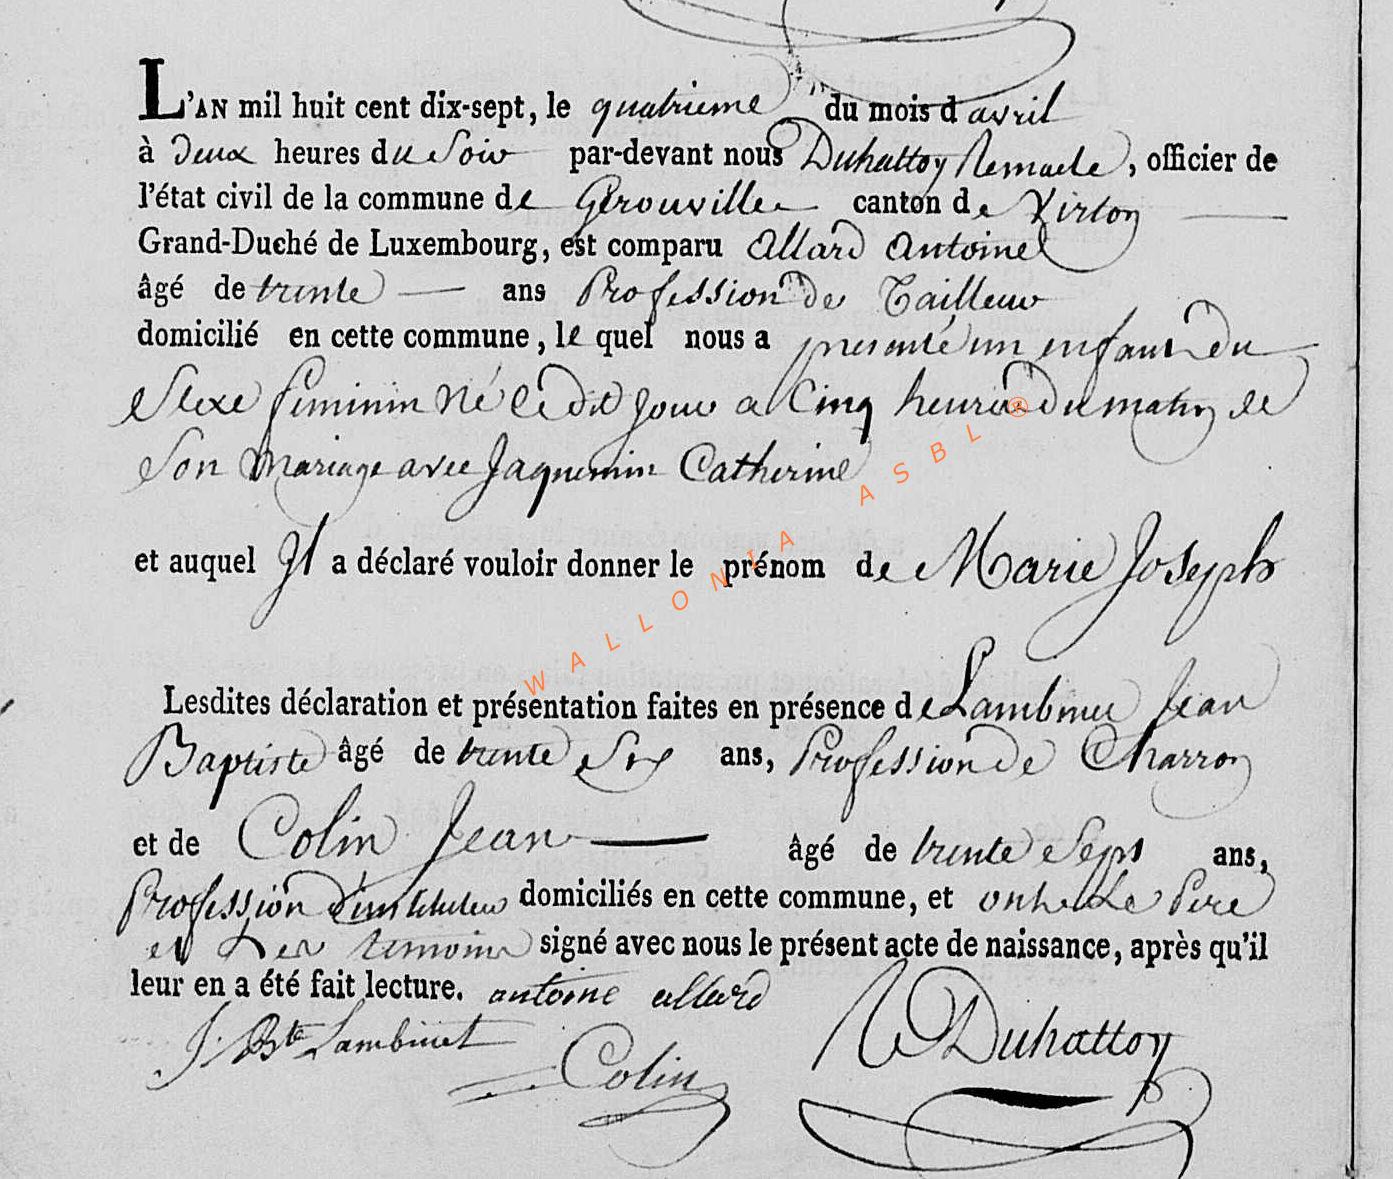 L'AN mil huit cent dix-sept, le quatrieme du mois d avril
à deux heures du Soir par-devant nous Duhattoy Remacle, officier de
l'état civil de la commune de Gérouville canton de Virton
Grand-Duché de Luxembourg, est comparu Allard Antoine
âgé de trente ans Profession de Tailleur
domicilié en cette commune, le quel nous a présenté un enfant du
Sexe feminin Né le dit jour a Cinq heures du matin de
Son mariage avec Jaquemin Catherine
et auquel Il a déclaré vouloir donner le prénom de Marie Joseph
Lesdites déclaration et présentation faites en présence de Lambinet Jean
Baptiste âgé de trente Six ans, Profession de Charron
et de Colin Jean âgé de trente Sept ans,
Profession d'instituteur domiciliés en cette commune, et ont le Pere
et Les temoins signé avec nous le présent acte de naissance, après qu'il
leur en a été fait lecture. antoine allard
J. Bte Lambinet
Colin
R Duhattoy
WALLONIA ASBL ®